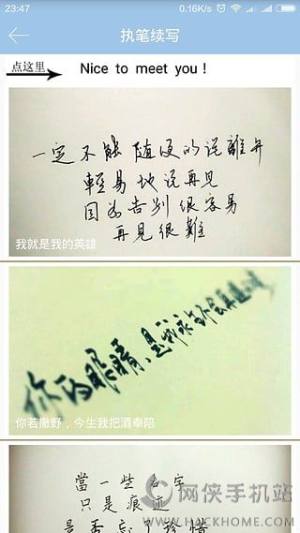 23:47
0.16K/s
执笔续写
点这里
Nice to meet you !
一定不能随便的说離开
輕易地说再见
因为告别很容易
再見很難
我就是我的英雄
你的眼睛,是
你若撒野，今生我把酒奉陪
當一些文字
只是痕迹
是否忘了珍惜
网侠手机站
WWW.HACKHOME.COM